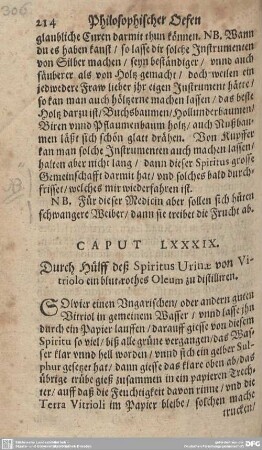 306
214 Philosophischer Oefen
glaubliche Curen darmit thun können. NB. Wann
du es haben kanst / so lasse dir solche Instrumenten
von Silber machen / seyn beständiger / vnnd auch
säuberer als von Holtz gemacht / doch weilen ein
jedwedere Fraw lieber jhr eigen Instrument hätte /
so kan man auch höltzerne machen lassen / das beste
Holtz darzu ist / Buchsbaumen / Hollunderbaumen /
Biren vnnd Pflaumenbaum holtz / auch Nußbau-
men läßt sich schön glatt drähen. Von Kupffer
kan man solche Instrumenten auch machen lassen /
halten aber nicht lang / dann dieser Spiritus grosse
Gemeinschafft darmit hat / vnd solches bald durch-
frisset / welches mir wiederfahren ist.
NB. Für dieser Medicin aber sollen sich hüten
schwangere Weiber / dann sie treibet die Frucht ab.
CAPUT LXXXIX.
Durch Hülff deß Spiritus Urinæ von Vi-
triolo ein blutrothes Oleum zu distilliren.
SOlvier einen Vngarischen / oder andern guten
Vitriol in gemeinem Wasser / vnnd lasse jhn
durch ein Papier lauffen / darauff giesse von diesem
Spiritu so viel / biß alle grüne vergangen / das Was-
ser klar vnnd hell worden / vnnd sich ein gelber Sul-
phur gesetzet hat / dann giesse das klare oben ab / das
übrige trübe gieß zusammen in ein papieren Trech-
ter / auff daß die Feuchtigkeit davon rinne / vnd die
Terra Vitrioli im Papier bleibe / solchen mache
trucken /